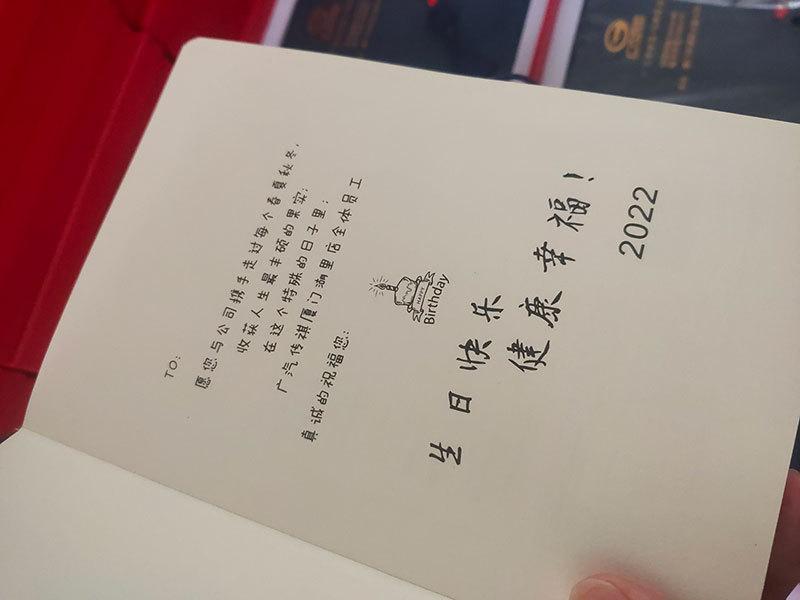 TO:
愿您与公司携手走过每个春夏秋冬,
收获人生最丰硕的果实;
在这个特殊的日子里;
广汽传祺厦门湖里店全体员工
真诚的祝福您:
HAPPY
Birthday
生日快乐
健康幸福!
2022